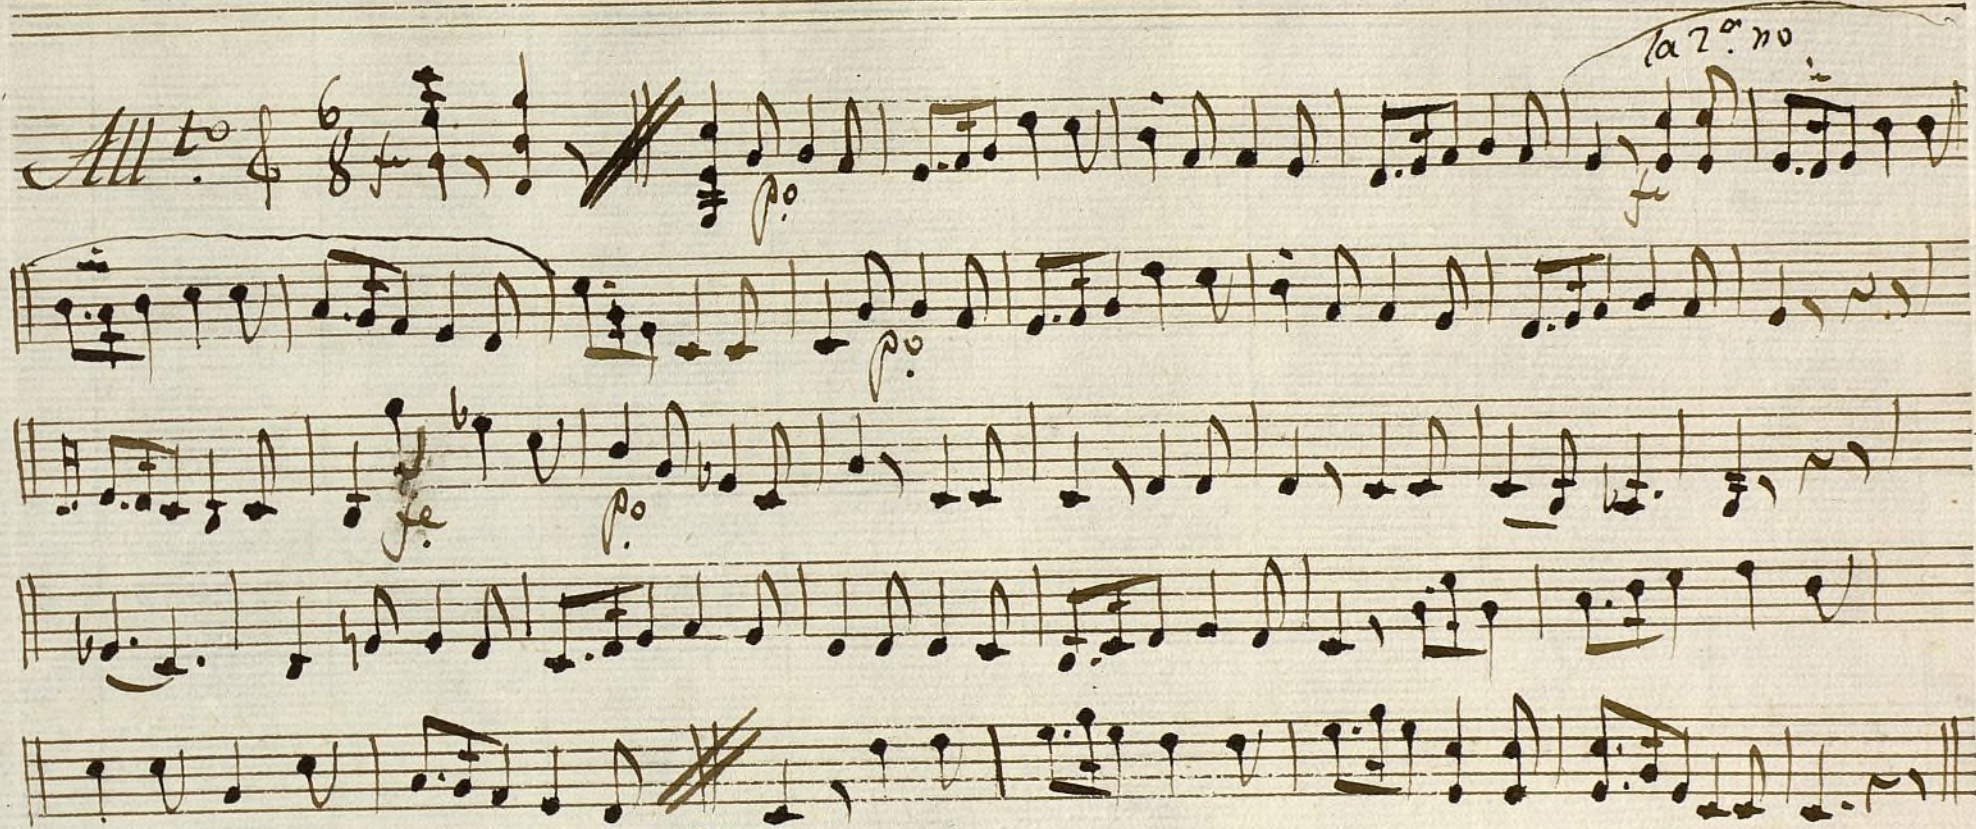 la 2ª. no
All.to 6 8 fe po fe
po
fe po